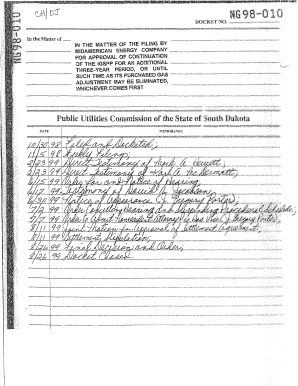 CH/DJ
DOCKET NO. NG98-010
NG98-010
In the Matter of
IN THE MATTER OF THE FILING BY
MIDAMERICAN ENERGY COMPANY
FOR APPROVAL OF CONTINUATION
OF THE IGSPP FOR AN ADDITIONAL
THREE-YEAR PERIOD, OR UNTIL
SUCH TIME AS ITS PURCHASED GAS
ADJUSTMENT MAY BE ELIMINATED,
WHICHEVER COMES FIRST
Public Utilities Commission of the State of South Dakota
DATE MEMORANDA
10/30 98 Filed and Docketed;
11/5 98 Weekly Filing;
2/23 99 Direct Testimony of Mark A.
2/23 99 Direct Testimony of Karl A. McDermott;
6/15 99 Order for and Notice of Hearing;
6/17 99 Testimony of
6/30 99 Notice of Appearance J. Gregory Porter;
7/2 99 Order Canceling Hearing and Procedural Schedule;
7/7 99 Order to Admit Nonresident Attorney Pro Hac Vice J. Gregory Porter;
8/11 99 Joint Motion for Approval of Settlement Agreement;
8/11 99 Settlement Stipulation;
8/26 99 Final Decision and Order;
8/26 99 Docket Closed